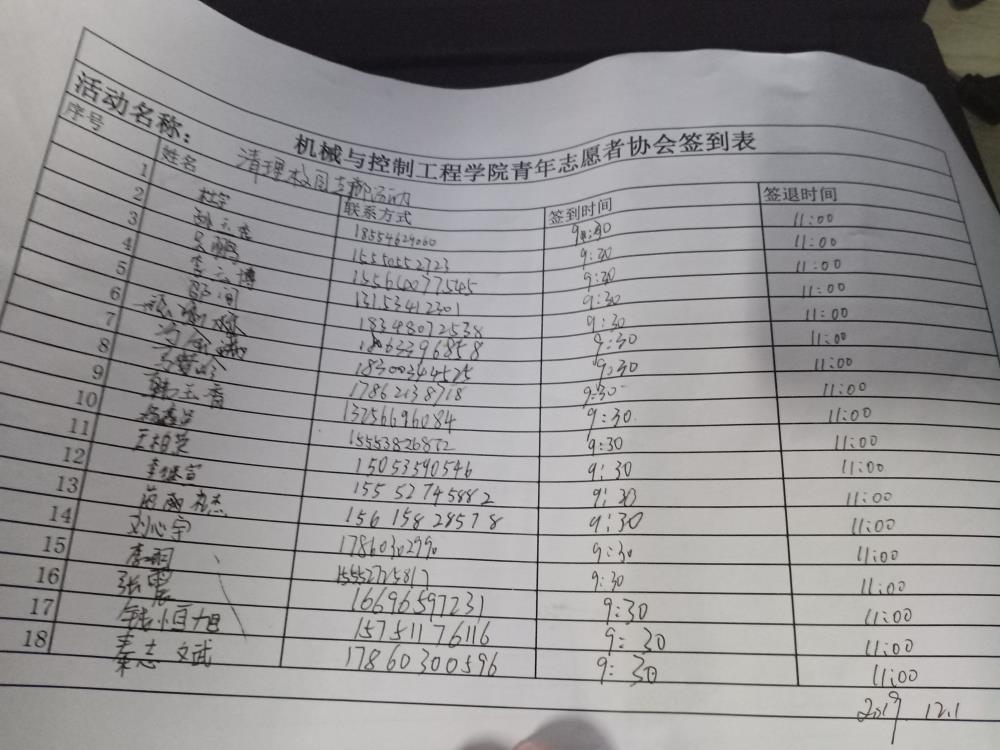 机械与控制工程学院青年志愿者协会签到表
活动名称： 清理校园志愿活动
序号 姓名 联系方式 签到时间 签退时间
1 杜宇 18554629060 9:30 11:00
2 15550552723 9:30 11:00
3 155640077545 9:30 11:00
4 李云博 13153412301 9:30 11:00
5 邵闯 18348072538 9:30 11:00
6 18663396858 9:30 11:00
7 18300344575 9:30 11:00
8 17862138718 9:30 11:00
9 韩玉香 13256696084 9:30 11:00
10 15553826872 9:30 11:00
11 15053590546 9:30 11:00
12 15552745882 9:30 11:00
13 15615828578 9:30 11:00
14 刘心宇 17860302990 9:30 11:00
15 15552725817 9:30 11:00
16 张震 16696597231 9:30 11:00
17 钱恒旭 15751176116 9:30 11:00
18 秦志文武 17860300596 9:30 11:00
2019.12.1